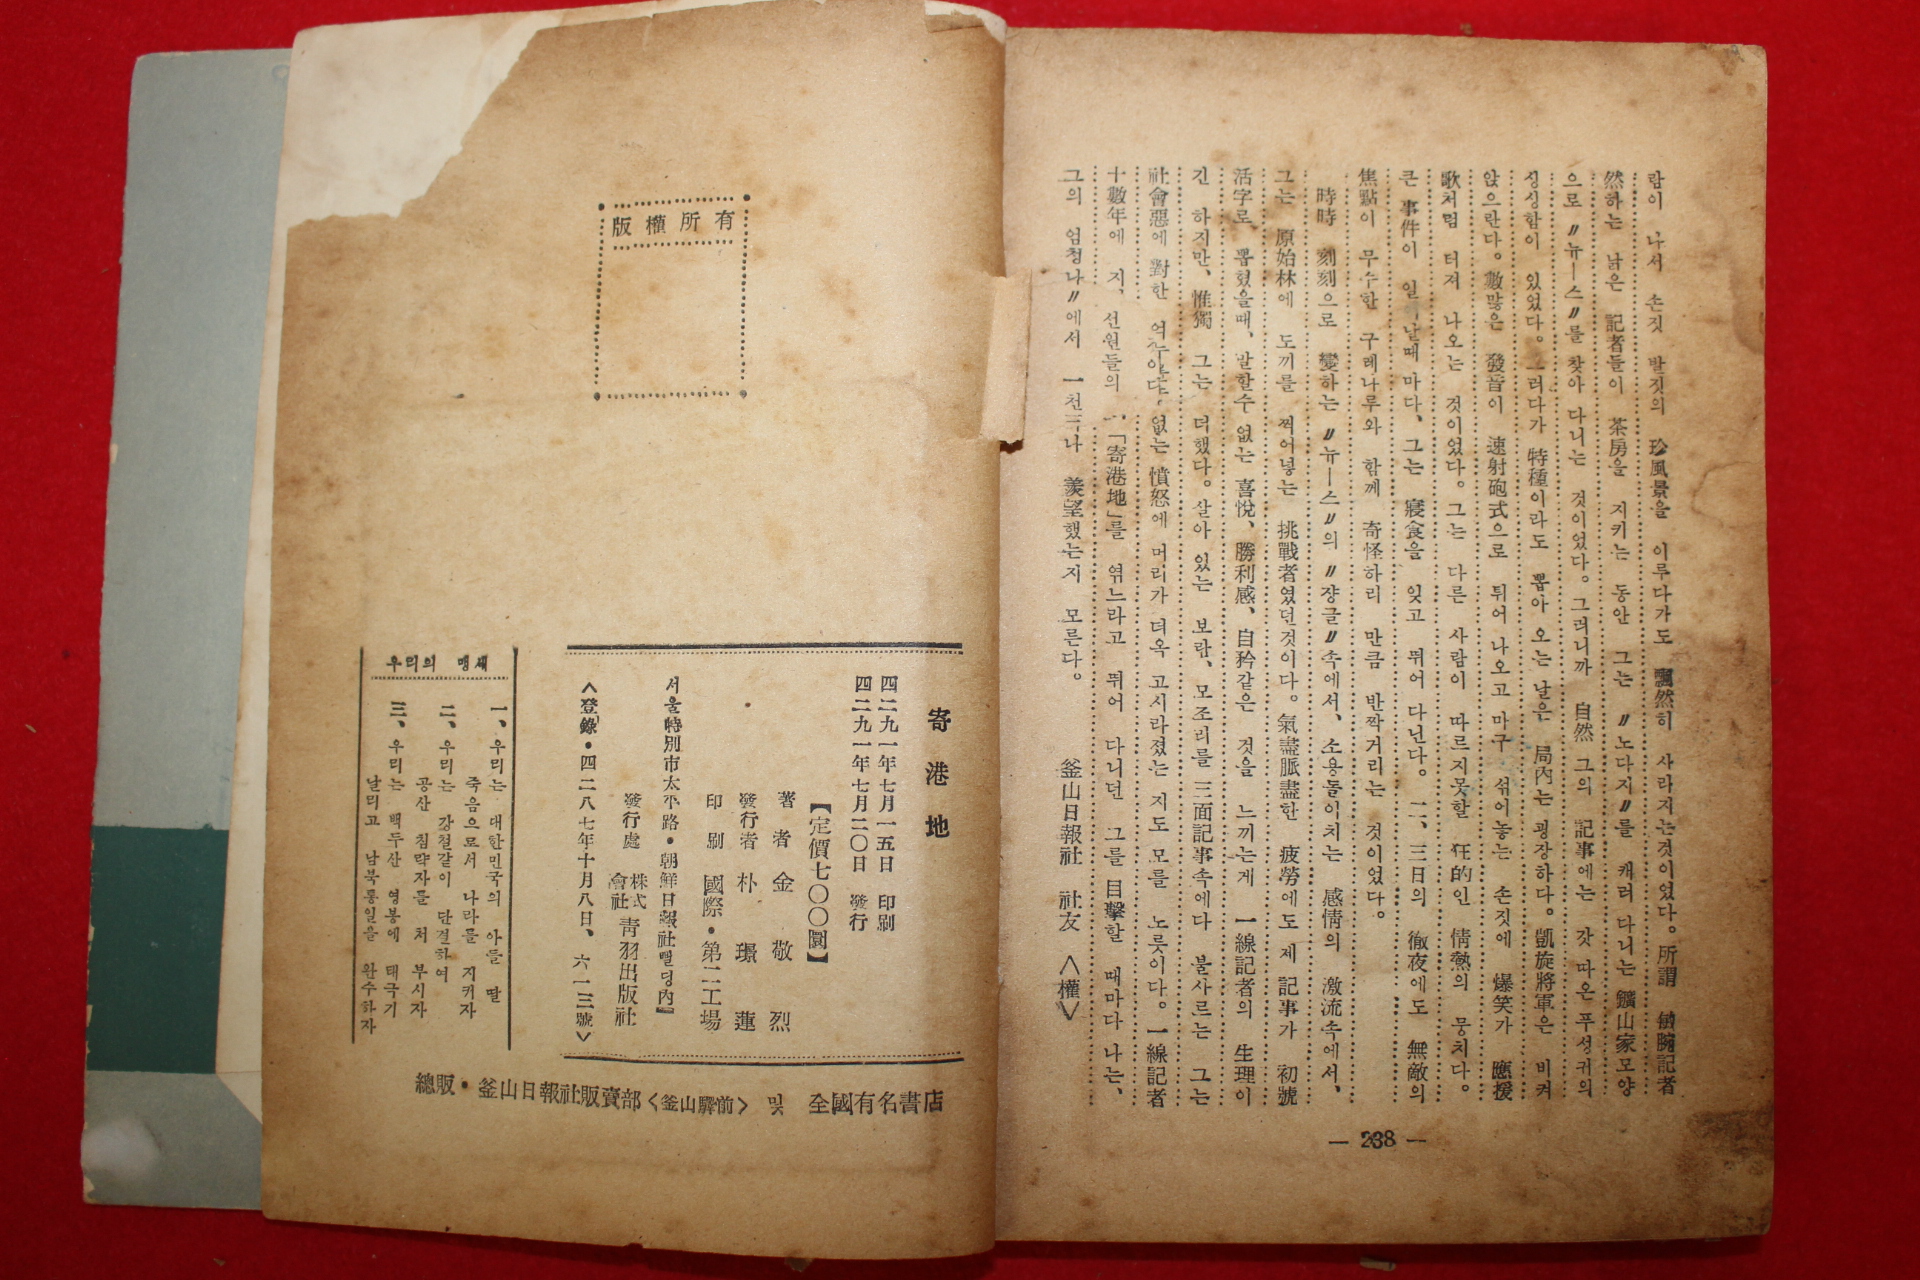 람이 나서 손짓 발짓의 珍風景을 이루다가도 飄然히 사라지는것이었다。所謂 敏腕記者
然하는 낡은 記者들이 茶房을 지키는 동안 그는 〃노다지〃를 캐러 다니는 鑛山家모양
으로 〃뉴—스〃를 찾아 다니는 것이었다。그러니까 自然 그의 記事에는 갓 따온 푸성귀의
싱싱함이 있었다。그러다가 特種이라도 뽑아 오는 날은 局內는 굉장하다。凱旋將軍은 비켜
앉으란다。數많은 發音이 速射砲式으로 튀어 나오고 마구 섞어놓는 손짓에 爆笑가 應援
歌처럼 터져 나오는 것이었다。그는 다른 사람이 따르지못할 狂的인 情熱의 뭉치다。
큰 事件이 일어날때 마다、그는 寢食을 잊고 뛰어 다닌다。二、三日의 徹夜에도 無敵의
焦點이 무수한 구레나루와 함께 奇怪하리 만큼 반짝거리는 것이었다。
時時 刻刻으로 變하는 〃뉴—스〃의 〃쟝글〃속에서、소용돌이치는 感情의 激流속에서、
그는 原始林에 도끼를 찍어넣는 挑戰者였던것이다。氣盡脈盡한 疲勞에도 제 記事가 初號
活字로 뽑혔을때、말할수 없는 喜悅、勝利感、自矜같은 것을 느끼는게 一線記者의 生理이
긴 하지만、惟獨 그는 더했다。살아 있는 보람、모조리를 三面記事속에다 불사르는 그는
社會惡에 對한 없는 憤怒에 머리가 더욱 고시라졌는 지도 모를 노릇이다。一線記者
十數年에 지、선원들의 「寄港地」를 엮느라고 뛰어 다니던 그를 目擊할 때마다 나는、
그의 엄청나〃에서 一천 나 羨望했는지 모른다。
釜山日報社 社友 〈權〉
— 238 —
版權所有
寄港地
四二九一年七月一五日 印刷
四二九一年七月二〇日 發行
【定價七〇〇圜】
著者 金敬烈
發行者 朴璟蓮
印刷 國際・第二工場
서울特別市太平路・朝鮮日報社삘딩內
發行處 株式會社 靑羽出版社
〈登錄・四二八七年十月八日、六一三號〉
우리의 맹세
一、우리는 대한민국의 아들 딸
죽음으로서 나라를 지키자
二、우리는 강철같이 단결하여
공산 침략자를 처 부시자
三、우리는 백두산 영봉에 태극기
날리고 남북통일을 완수하자
總販・釜山日報社販賣部〈釜山驛前〉 및 全國有名書店